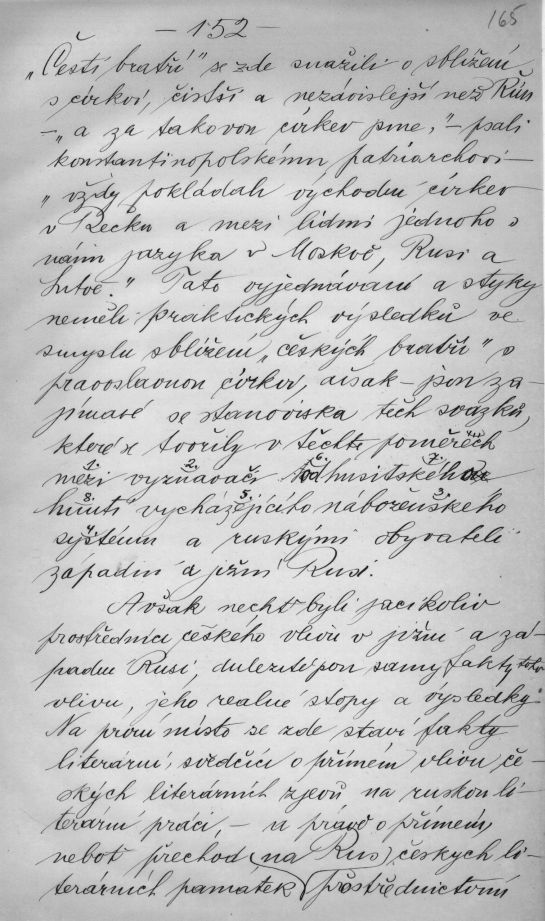 165
— 152 —
„Čestí bratří" se zde snažili o sblížení
s církví, čistší a nezávislejší než Řím
— „a za takovou církev jsme," — psali
konstantinopolskému patriarchovi —
„vždy pokládali východní církev
v Řecku a mezi lidmi jednoho s
námi jazyka v Moskvě, Rusi a
Litvě." Tato vyjednávání a styky
neměli praktických výsledků ve
smyslu sblížení „českých bratří" s
pravoslavnou církví, avšak — jsou za-
jímavé se stanoviska těch svazků,
které se tvořily v těchto poměrech
mezi vyznavači od husitského
hnutí vycházejícího náboženského
systému a ruskými obyvateli
západní a jižní Rusi.
Avšak nechť byli jacíkoliv
prostředníci českého vlivu v jižní a zá-
padní Rusi, duležité jsou samy fakty toho
vlivu, jeho realné stopy a výsledky.
Na první místo se zde staví fakty
literární, svědčící o přímém vlivu če-
ských literárních zjevů na ruskou li-
terární práci, — a právě o přímém,
neboť přechod (na Rus) českych li-
terárních památek prostřednictvím